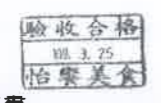 驗收合格
109. 3. 25
怡饗美食